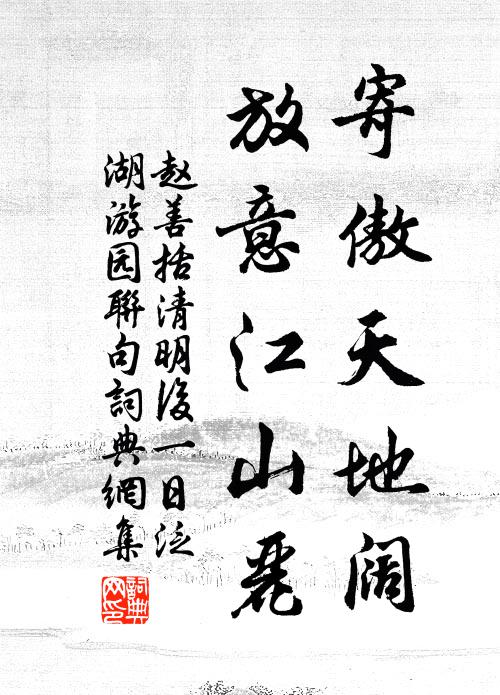 寄傲天地阔
放意江山麗
赵善括清明後一日泛
湖游园聯句詞典網集
詞典
网印